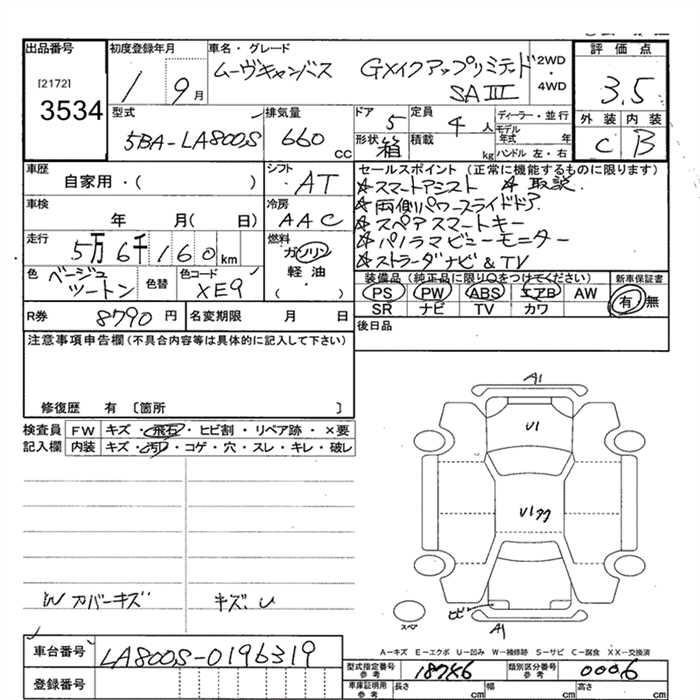 出品番号
[2172]
3534
初度登録年月
1 9月
車名・グレード
ムーヴキャンバス GXメイクアップリミテッド
SAIII
2WD
・
4WD
評価点
3.5
外装 内装
C B
型式
5BA-LA800S
排気量
660 cc
ドア 5
定員 4人
形状 箱
積載 kg
ディーラー・並行
モデル年式 年
ハンドル 左・右
車歴
自家用・( )
シフト
AT
車検
年 月( 日)
冷房
AAC
走行
5万6千160km
燃料
ガソリン
軽油
( )
色 ベージュツートン
色替
色コード
XE9
R券 8790円
名変期限 月 日
セールスポイント (正常に機能するものに限ります)
☆スマートアシスト ☆取説
☆両側パワースライドドア
☆スペアスマートキー
☆パノラマビューモニター
☆ストラーダナビ&TV
装備品 (純正品に限り○をつけてください)
PS PW ABS エアB AW
SR ナビ TV カワ
新車保証書
有・無
後日品
注意事項申告欄(不具合内容等は具体的に記入して下さい)
修復歴 有〔箇所 〕
検査員 FW キズ・飛石・ヒビ割・リペア跡・×要
記入欄 内装 キズ・汚れ・コゲ・穴・スレ・キレ・破レ
Wカバーキズ キズ、U
A1
U1
U1
ビビ
スペア
A1
A−キズ E−エクボ U−凹み W−補修跡 S−サビ C−腐食 XX−交換済
車台番号 LA800S-0196319
登録番号
型式指定番号 参考 18746
類別区分番号 参考 0006
車庫証明用 参考 長さ cm 幅 cm 高さ cm